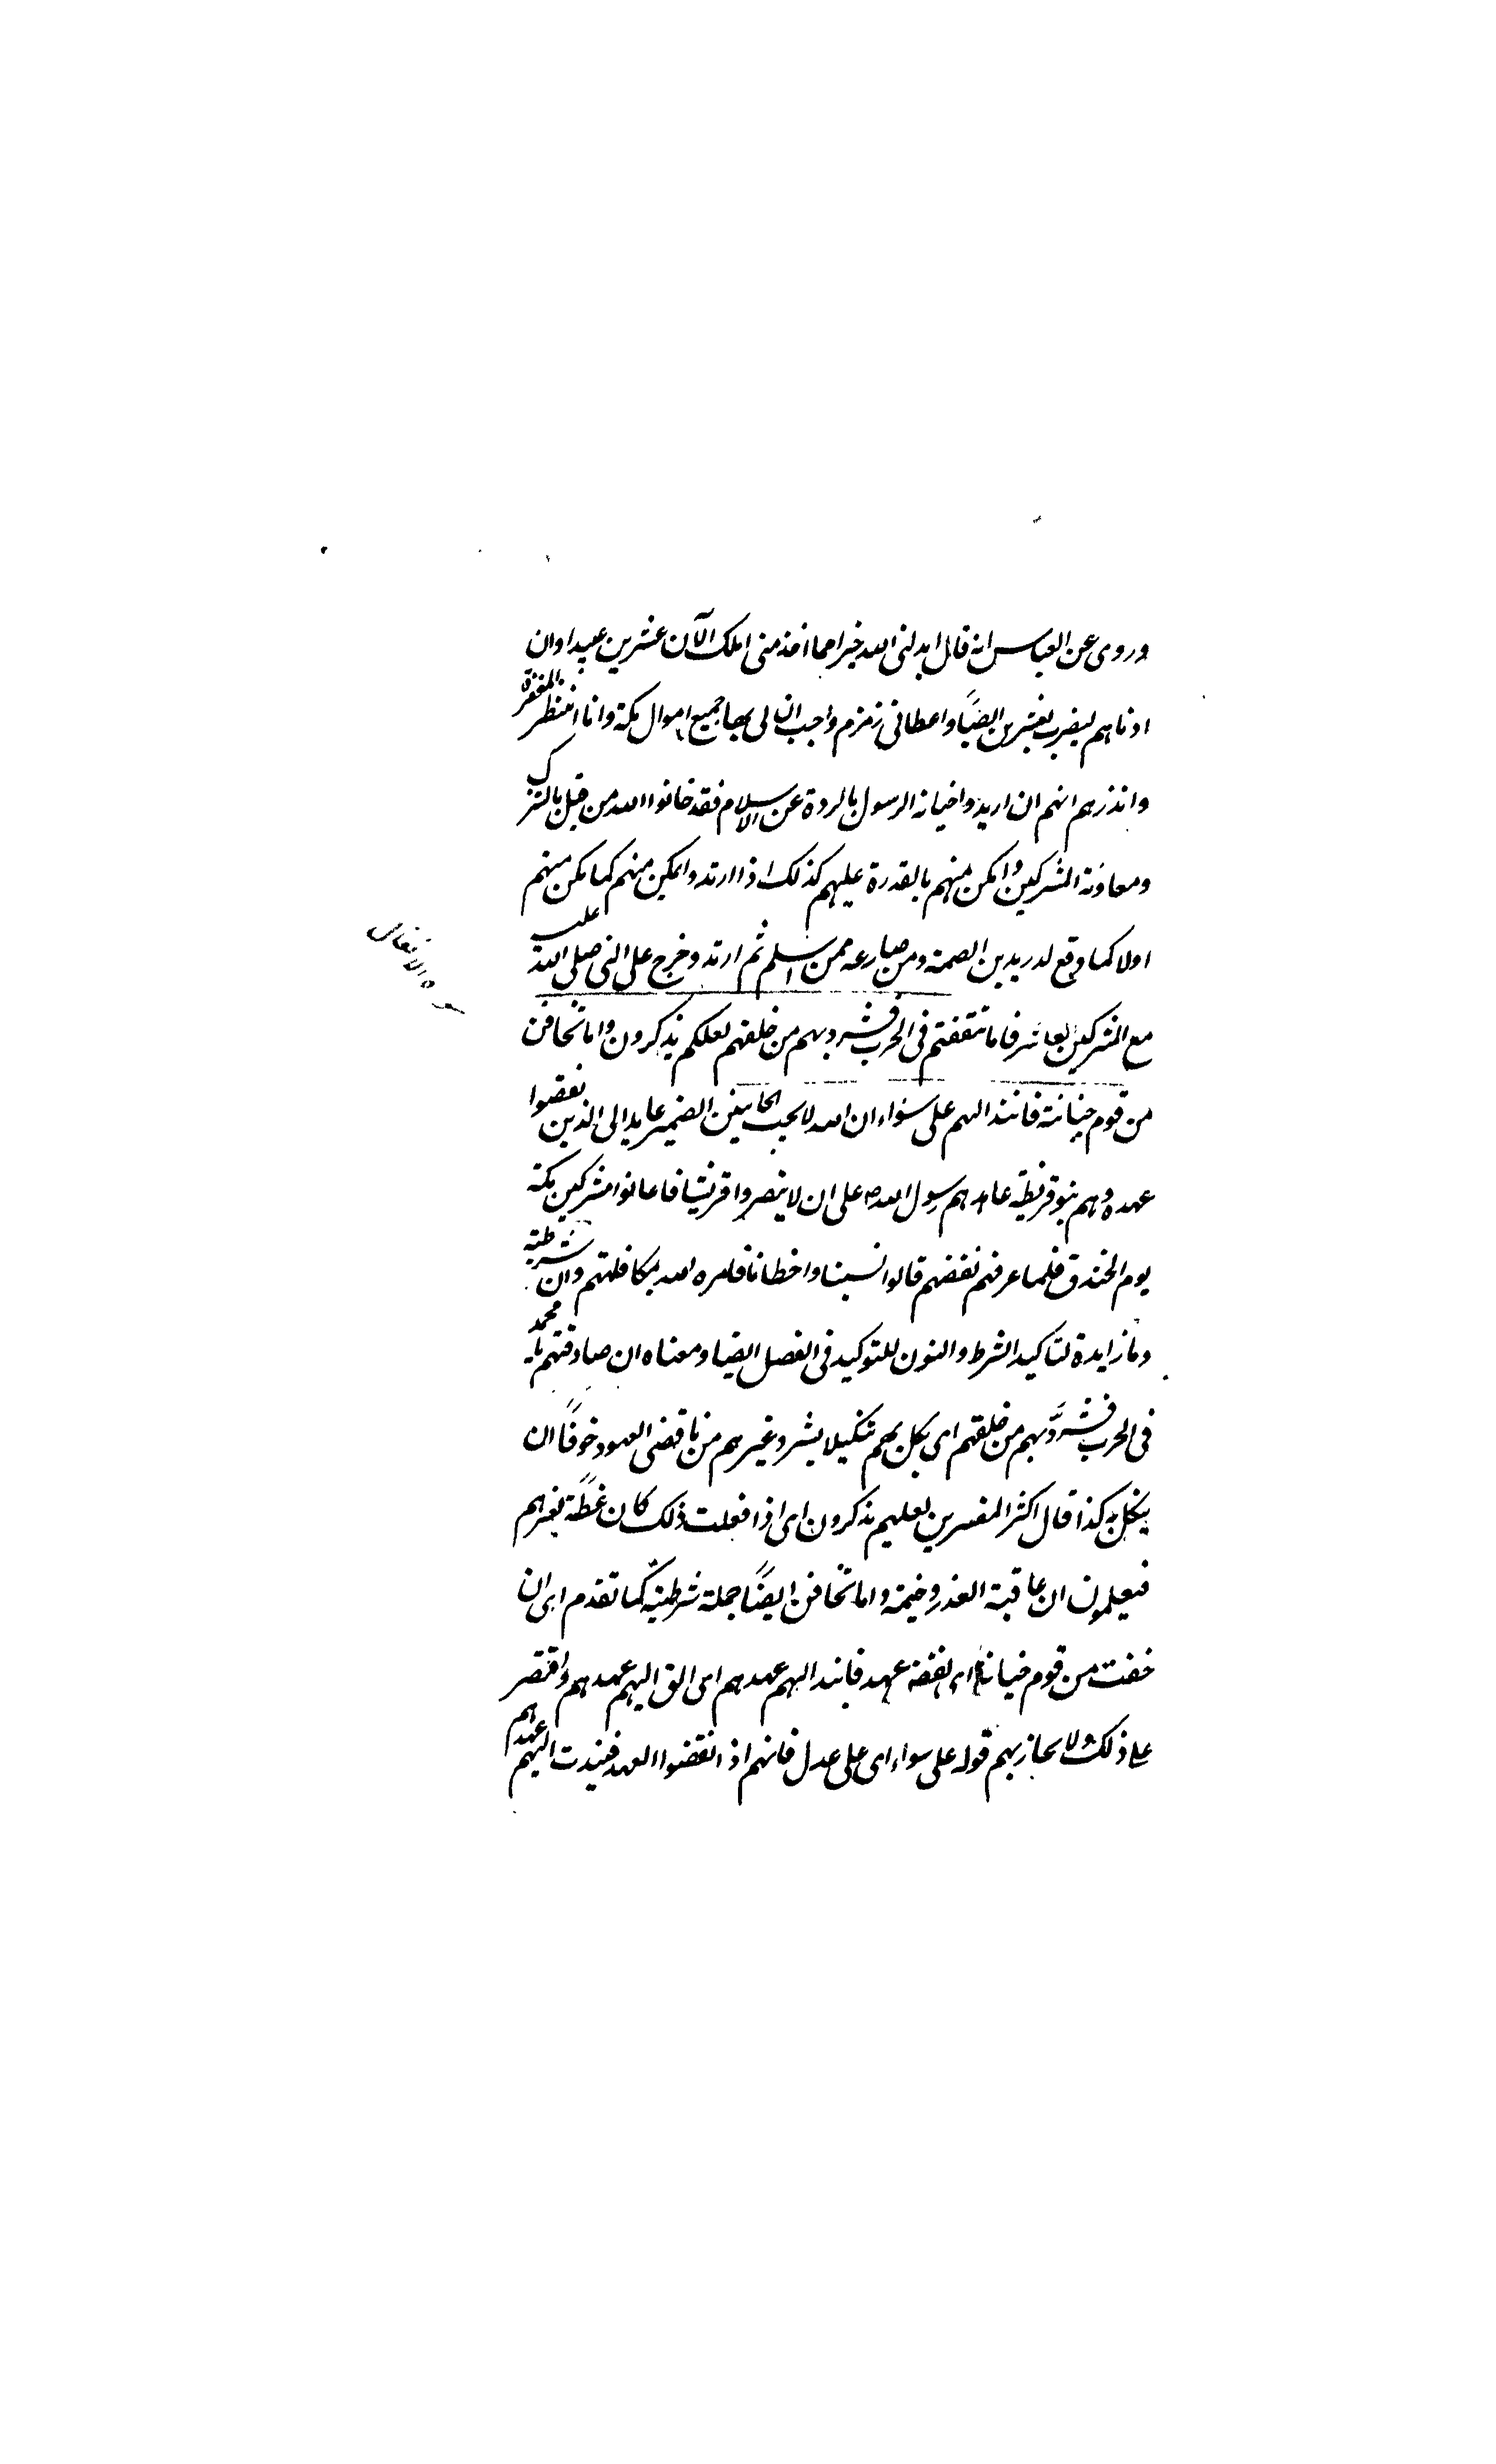 وروى عن العباس انه قال ابدلنى الله خيرا مما اخذ منى املك الآن عشرين عبدا وان
ادناهم ليضرب بعشرين ايضًا واعطانى زمزم واحب ان لى بها جميع اموال مكة وانا انتظر المغفرة
وانذرهم انهم ان اريدوا خيانة الرسول بالردة عن الاسلام فقد خانوا الله من قبل بالشرك
ومعاونة المشركين وامكن منهم بالقدرة عليهم كذلك اذا ارتدوا يمكن منهم كما مكن منهم
اولا كما وقع لدريد بن الصمة ومن صارعه ممن اسلم ثم ارتد وخرج على النبى صلى الله عليه
مع المشركين فاما تثقفنهم فى الحرب فشرد بهم من خلفهم لعلكم يذكرون واما تخافن
من قوم خيانة فانبذ اليهم على سواء ان الله لا يحب الخاينين الضمير عايد الى الذين نقضوا
عهده وهم بنو قريظة عاهدهم رسول الله ص على ان لا ينصروا قريشا فاعانوا مشركين مكة
يوم الخندق فلما عرفهم نقضهم قالوا نسينا واخطانا فامره الله بمكافلتهم وان شرطية
وما زايدة لتاكيد الشرط والنون للتوكيد فى الفصل ايضا ومعناه ان صادفتهم يا محمد
فى الحرب فشرّد بهم من خلفهم اى نكل بهم تنكيلا يشرد غيرهم من ناقضى العهود خوفًا ان
ينكل به كذا قال اكثر المفسرين لعلهم يذكرون اى اذا فعلت ذلك كان عظة لغيرهم
فيعلمون ان عاقبة الغدر وخيمة واما تخافن ايضًا جملة شرطية كما تقدم اى ان
خفت من قوم خيانة اى نقضة عهد فانبذ اليهم عهدهم اى الق اليهم عهدهم واقتصر
على ذلك ولا تحاربهم قوله على سواء اى على عدل فانهم اذ انقضوا العهد فنبذت اليهم عهدهم
سورة الانفال